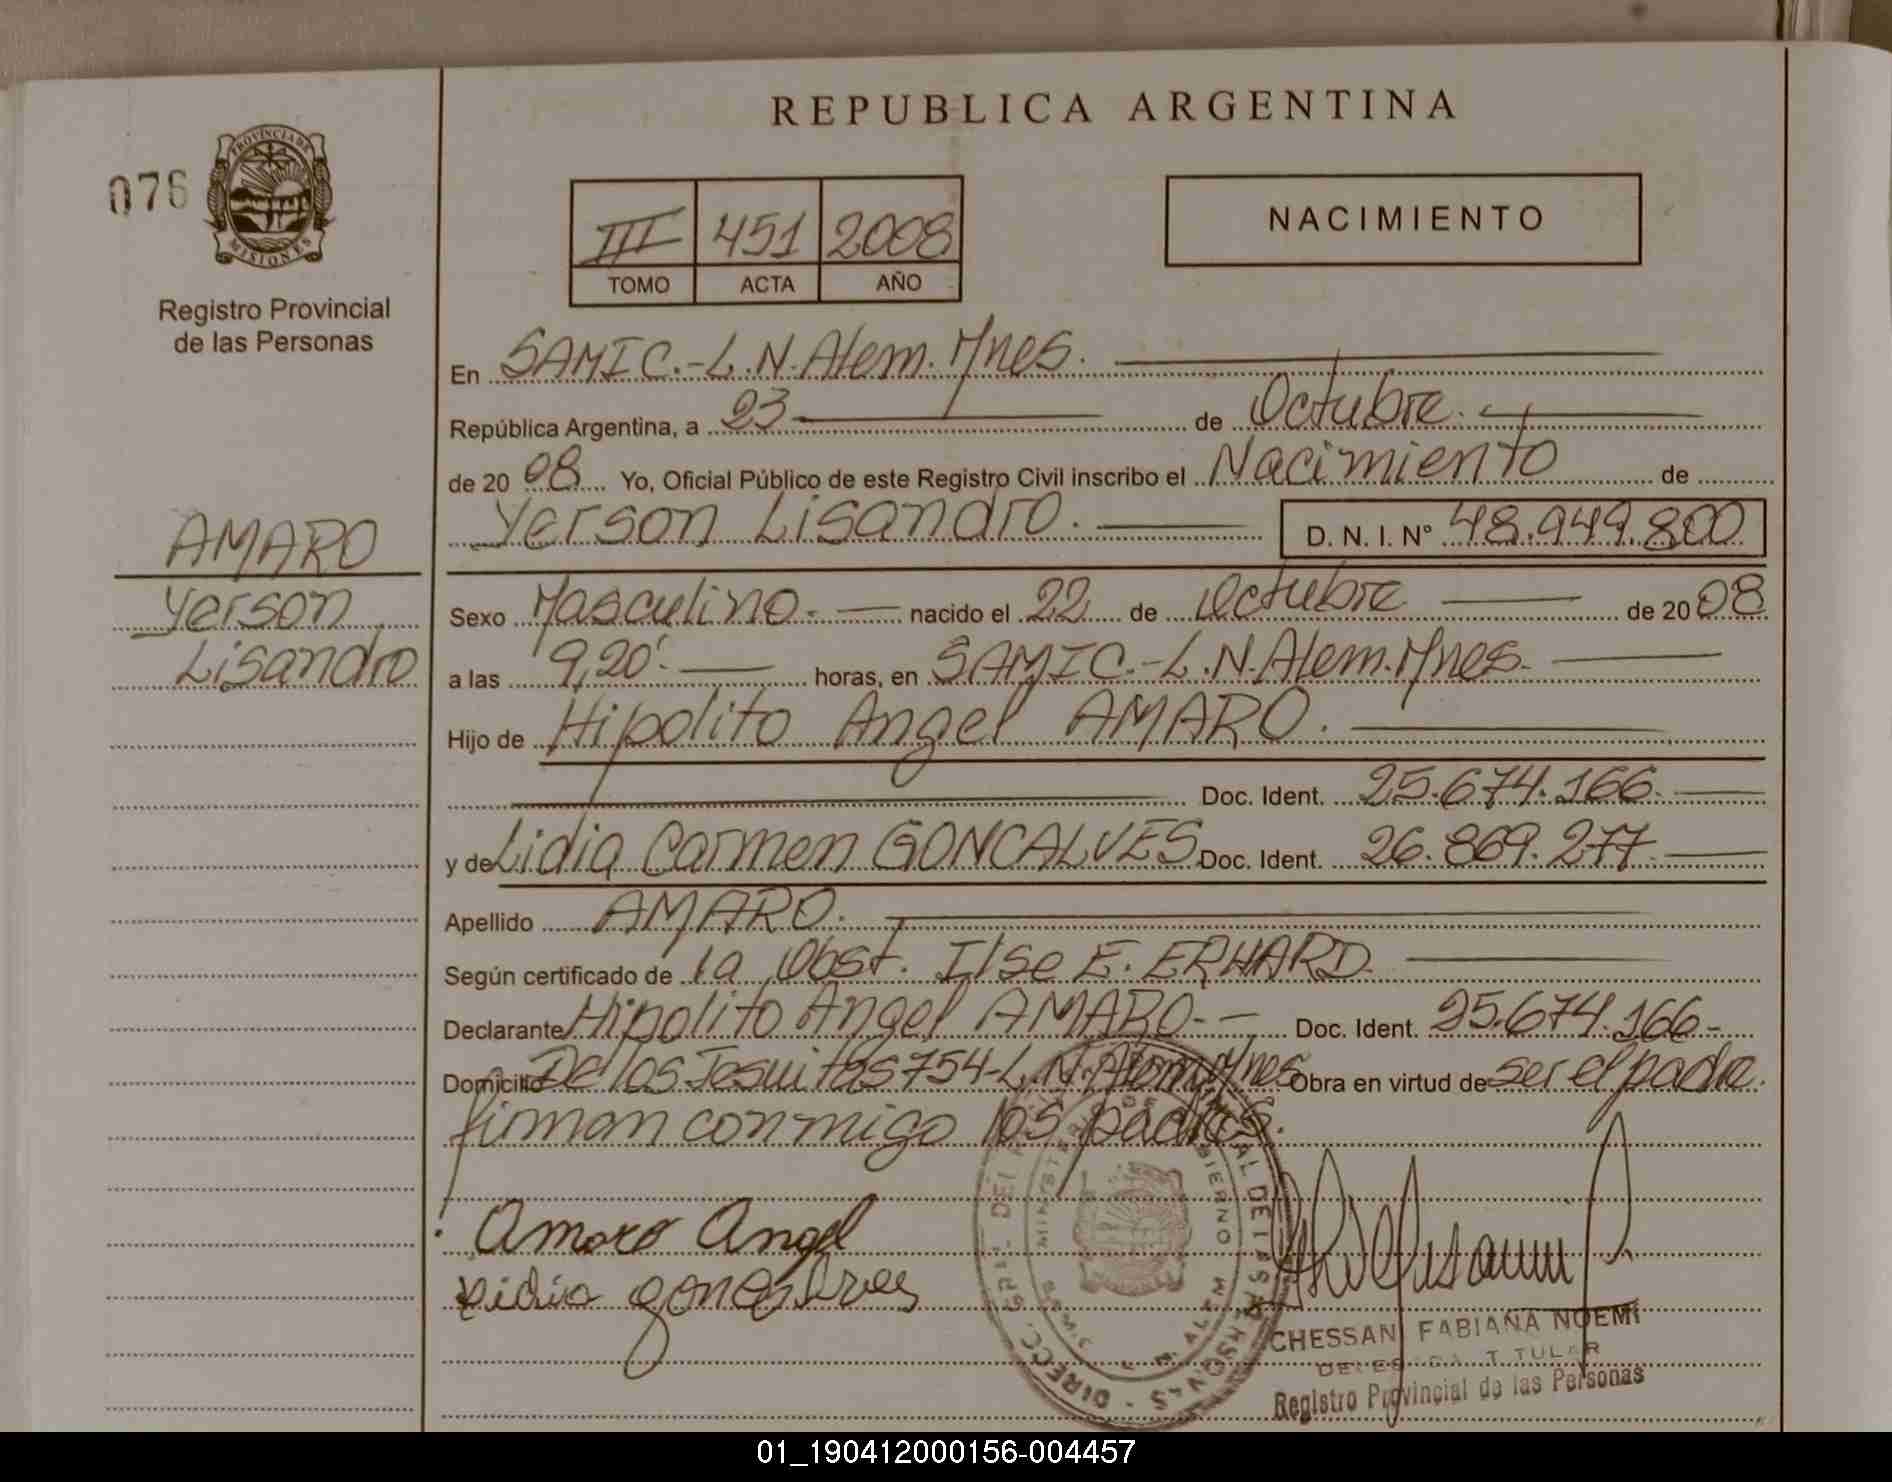 REPUBLICA ARGENTINA
076
PROVINCIA DE
MISIONES
Registro Provincial
de las Personas
III 451 2008
TOMO ACTA AÑO
NACIMIENTO
En SAMIC.-L.N.Alem.Mnes.
República Argentina, a 23 de Octubre.
de 2008 Yo, Oficial Público de este Registro Civil inscribo el Nacimiento de
Yerson Lisandro. D. N. I. N° 48.949.800
AMARO
Yerson
Lisandro
Sexo Masculino.- nacido el 22 de Octubre de 2008
a las 9,20'.- horas, en SAMIC.-L.N.Alem.Mnes.
Hijo de Hipolito Angel AMARO.
Doc. Ident. 25.674.166.
y de Lidia Carmen GONCALVES Doc. Ident. 26.869.277.
Apellido AMARO.
Según certificado de la Obst. Ilse E. ERHARD.
Declarante Hipolito Angel AMARO.- Doc. Ident. 25.674.166-
Domicilio De los Jesuitas 754-L.N.Alem.Mnes Obra en virtud de ser el padre.
firman conmigo los padres.
Amaro Angel
CHESSANI FABIANA NOEMI
DELEGADA TITULAR
Registro Provincial de las Personas
01_190412000156-004457